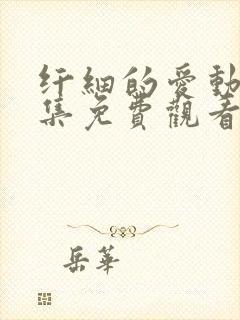 纤細的愛動
集免費觀看
岳華